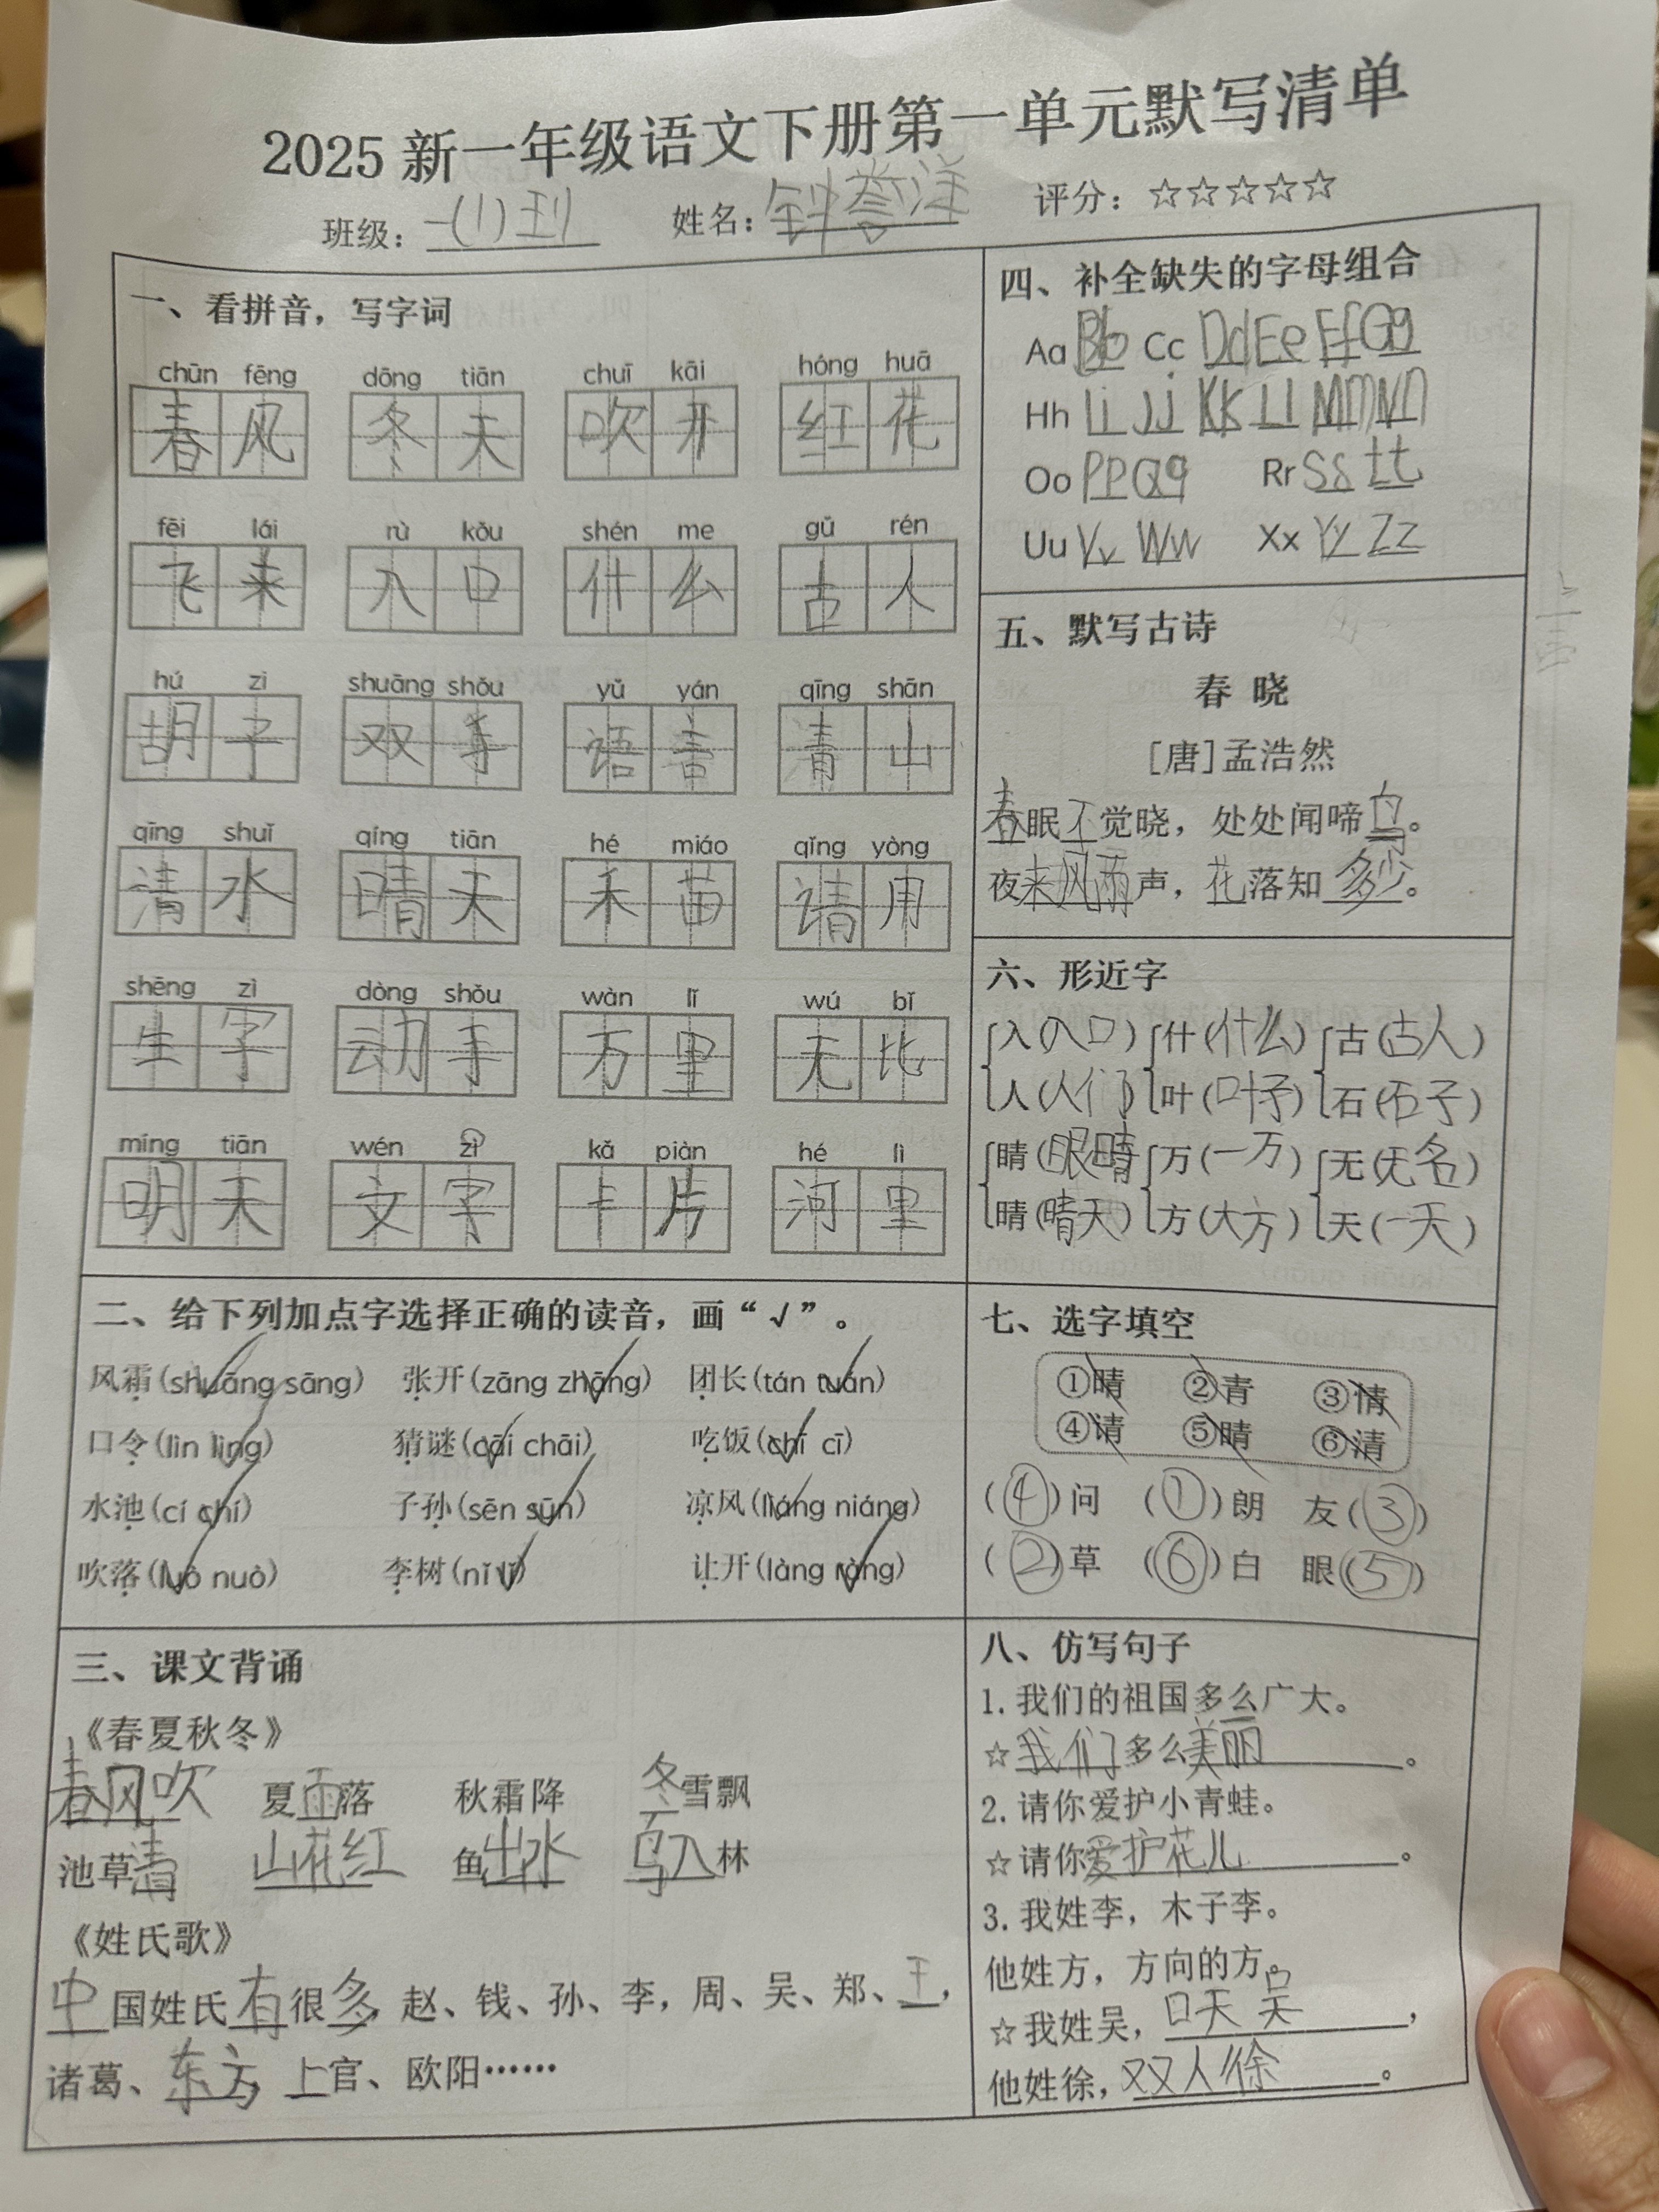 2025新一年级语文下册第一单元默写清单
班级：一(1)班 姓名：钟誉洋 评分：☆☆☆☆☆
一、看拼音，写字词
chūn fēng dōng tiān chuī kāi hóng huā
春风 冬天 吹开 红花
fēi lái rù kǒu shén me gǔ rén
飞来 入口 什么 古人
hú zi shuāng shǒu yǔ yán qīng shān
胡子 双手 语言 青山
qīng shuǐ qíng tiān hé miáo qǐng yòng
清水 晴天 禾苗 请用
shēng zì dòng shǒu wàn lǐ wú bǐ
生字 动手 万里 无比
míng tiān wén zì kǎ piàn hé lì
明天 文字 卡片 河里
二、给下列加点字选择正确的读音，画“√”。
风霜(shuāng sāng) 张开(zāng zhāng) 团长(tán tuán)
口令(lìn lìng) 猜谜(cāi chāi) 吃饭(chī cī)
水池(cí chí) 子孙(sēn sūn) 凉风(liáng niáng)
吹落(luò nuò) 李树(nǐ lǐ) 让开(làng ràng)
三、课文背诵
《春夏秋冬》
春风吹 夏雨落 秋霜降 冬雪飘
池草清 山花红 鱼出水 鸟入林
《姓氏歌》
中国姓氏有很多，赵、钱、孙、李，周、吴、郑、王，
诸葛、东方，上官、欧阳……
四、补全缺失的字母组合
Aa Bb Cc Dd Ee Ff Gg
Hh Ii Jj Kk Ll Mm Nn
Oo Pp Qq Rr Ss tt
Uu Vv Ww Xx Yy Zz
五、默写古诗
春 晓
［唐］孟浩然
春眠不觉晓，处处闻啼鸟。
夜来风雨声，花落知多少。
六、形近字
入(入口) 什(什么) 古(古人)
人(人们) 叶(叶子) 石(石子)
睛(眼睛) 万(一万) 无(无名)
晴(晴天) 方(大方) 天(一天)
七、选字填空
①晴 ②青 ③情
④请 ⑤睛 ⑥清
(④)问 (①)朗 友(③)
(②)草 (⑥)白 眼(⑤)
八、仿写句子
1.我们的祖国多么广大。
☆我们多么美丽。
2.请你爱护小青蛙。
☆请你爱护花儿。
3.我姓李，木子李。
他姓方，方向的方。
☆我姓吴，口天吴，
他姓徐，双人徐。